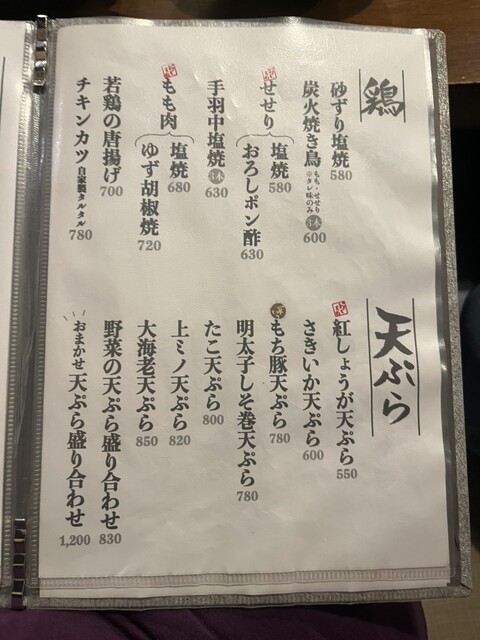 鶏
砂ずり塩焼 580
炭火焼き鳥 もも・せせり ※タレ味のみ 600
せせり
塩焼 580
おろしポン酢 630
手羽中塩焼 630
もも肉
塩焼 680
ゆず胡椒焼 720
若鶏の唐揚げ 700
チキンカツ 自家製タルタル 780
天ぷら
紅しょうが天ぷら 550
さきいか天ぷら 600
もち豚天ぷら 780
明太子しそ巻天ぷら 780
たこ天ぷら 800
上ミノ天ぷら 820
大海老天ぷら 850
野菜の天ぷら盛り合わせ 830
おまかせ 天ぷら盛り合わせ 1,200